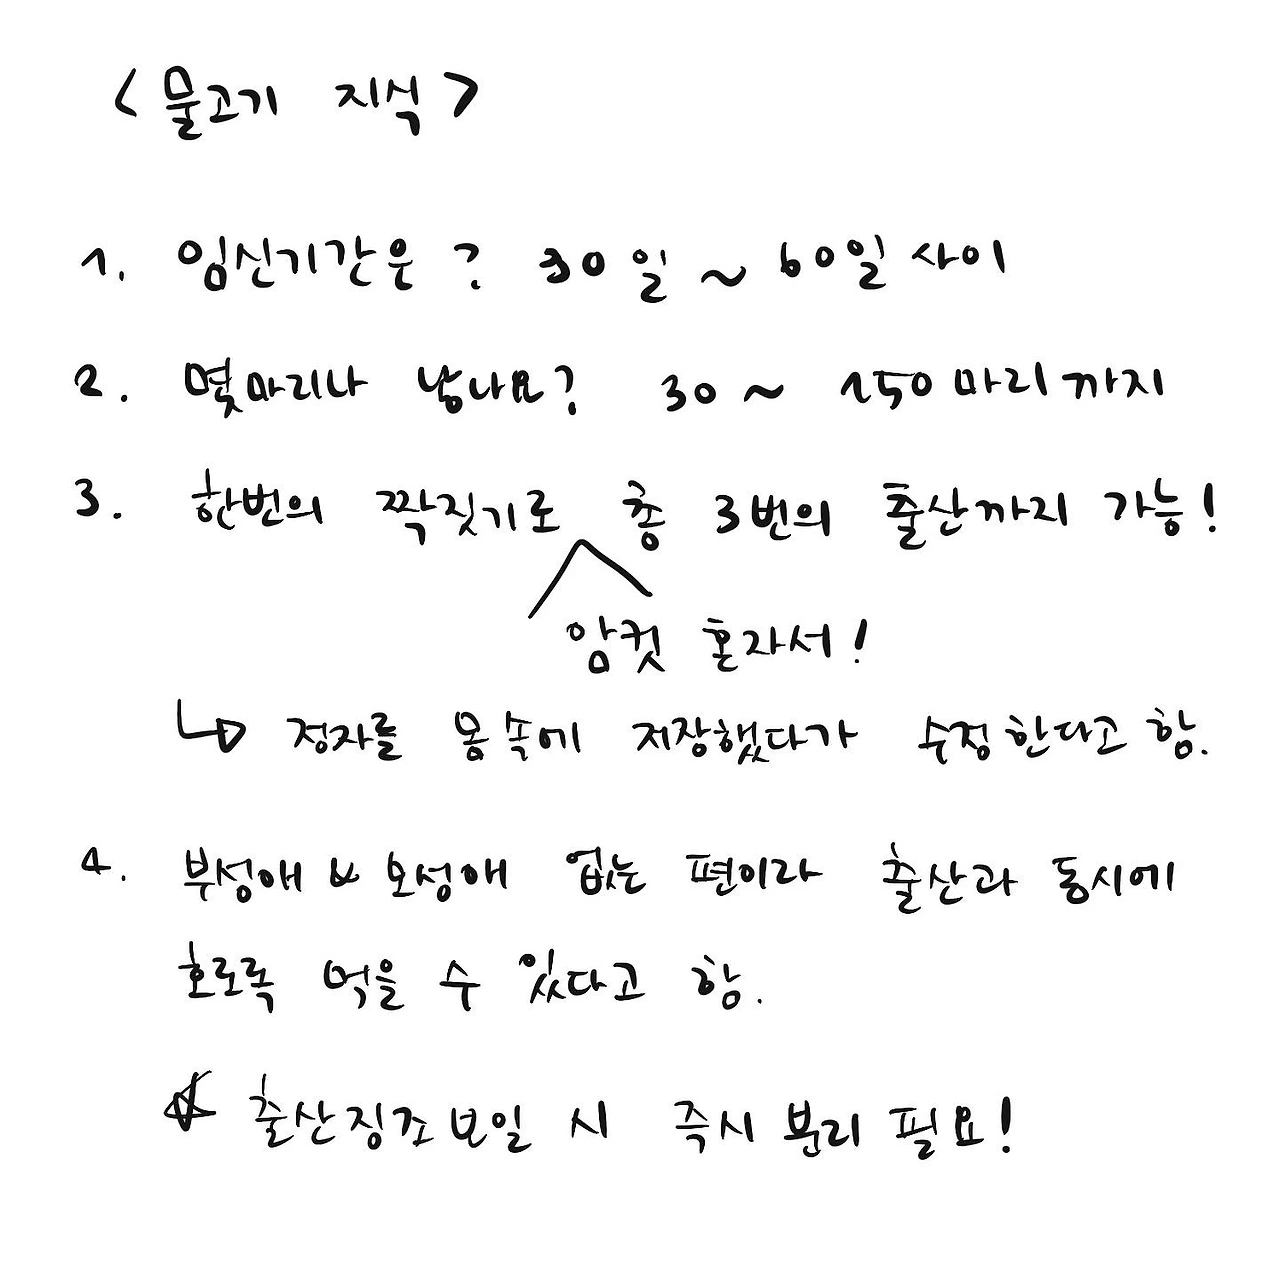 <물고기 지식>
1. 임신기간은? 30일 ~ 60일 사이
2. 몇마리나 낳나요? 30 ~ 150마리까지
3. 한번의 짝짓기로 총 3번의 출산까지 가능!
암컷 혼자서!
↳ 정자를 몸속에 저장했다가 수정한다고 함.
4. 부성애 모성애 없는 편이라 출산과 동시에
호로록 먹을 수 있다고 함.
☆ 출산징조 보일 시 즉시 분리 필요!